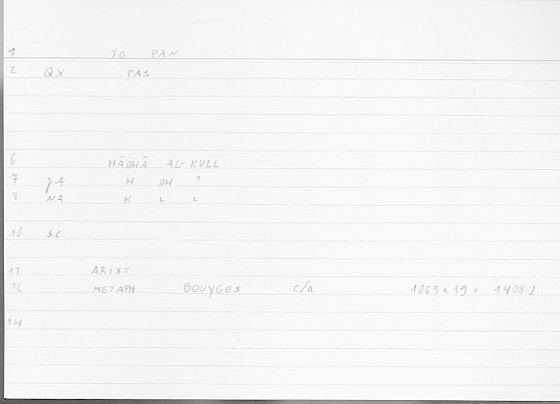 1 TO PAN
2 QX PAS
6 HĀDHĀ AL-KULL
7 JA H DH "
8 NA K L L
10 SC
11 ARIST
12 METAPH BOUYGES c/a 1069a19 = 1408.2
14